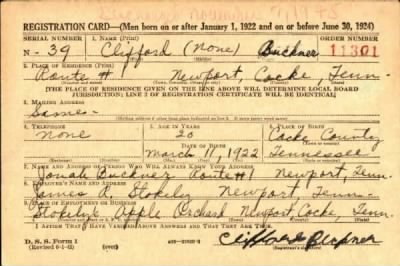 REGISTRATION CARD—(Men born on or after January 1, 1922 and on or before June 30, 1924)
SERIAL NUMBER 1. NAME (Print) ORDER NUMBER
N-39 Clifford (None) Buckner 11301
(First) (Middle) (Last)
2. PLACE OF RESIDENCE (Print)
Route #1 Newport, Cocke, Tenn.
[THE PLACE OF RESIDENCE GIVEN ON THE LINE ABOVE WILL DETERMINE LOCAL BOARD
JURISDICTION; LINE 2 OF REGISTRATION CERTIFICATE WILL BE IDENTICAL]
3. MAILING ADDRESS
Same
4. TELEPHONE 5. AGE IN YEARS 6. PLACE OF BIRTH
None 20 Cocke County
DATE OF BIRTH
March 1, 1922 Tennessee
7. NAME AND ADDRESS OF PERSON WHO WILL ALWAYS KNOW YOUR ADDRESS
Jonah Buckner Route #1 Newport, Tenn.
8. EMPLOYER'S NAME AND ADDRESS
James R. Stokely Newport, Tenn.
9. PLACE OF EMPLOYMENT OR BUSINESS
Stokely's Apple Orchard Newport, Cocke, Tenn.
I AFFIRM THAT I HAVE VERIFIED ABOVE ANSWERS AND THAT THEY ARE TRUE.
D. S. S. Form 1
(Revised 6-9-41) (over) Clifford Buckner
(Registrant's signature)